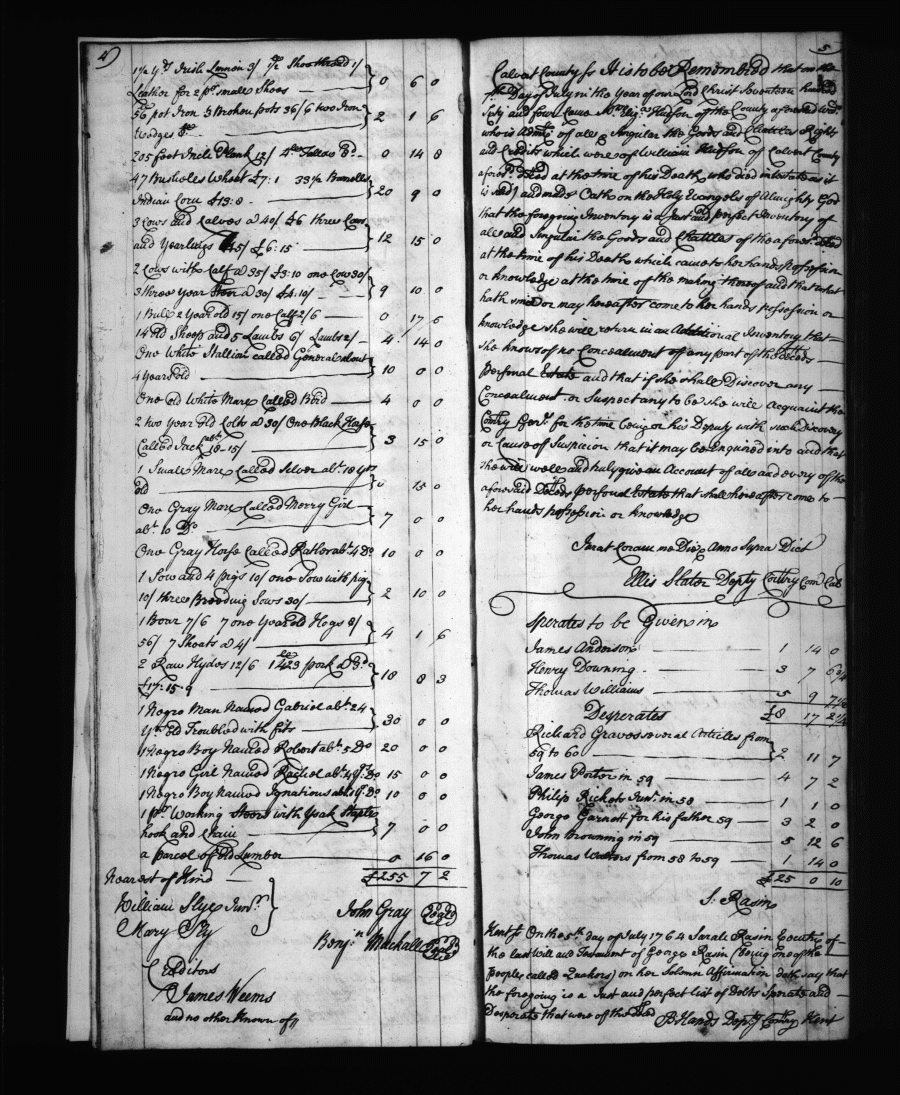 4
1½ yd Irish Linnen 3/ 1/2 Shoe thread 1/
Leather for 2 pr small Shoes — 0 6 0
56 pot Iron 3 Broken pots 36/6 two Iron
Wedges — 2 1 6
205 foot Inch Plank 12/ Tallow — 0 14 8
47 Bushels Wheat £7:1 33½ Barrells
Indian Corn £13:8 — 20 9 0
3 Cows and Calves a 40/ £6 three Cows
and Yearlings 45/ £6:15 — 12 15 0
2 Cows with Calf a 35/ £3:10 one Cow 30/
3 three year a 30/ £4:10/ — 9 10 0
1 Bull 2 Year old 15/ one Calf 2/6 — 0 17 6
14 old Sheep and 5 Lambs 6/ Lambs 2/ — 4 14 0
One White Stallian called General about
4 Years old — 10 0 0
One old White Mare Called Bird — 4 0 0
2 two Year old Colts a 30/ One Black Horse
Called Jack 15/ — 3 15 0
1 Small Mare Called Silver abt. 18 yrs
old — 0 15 0
One Gray Mare Called Merry Girl
abt. 10 Do — 7 0 0
One Gray Horse Called abt 4 Do 10 0 0
1 Sow and 4 pigs 10/ one Sow with pig
10/ three Breeding Sows 30/ — 2 10 0
1 Boar 7/6 7 one Year old Hogs 8/
56/ 7 Shoats a 4/ — 4 1 6
2 Raw Hydes 12/6 1423 pork a 3d
£17:15:9 — 18 8 3
1 Negro Man Named Gabriel abt. 24
Yrs. old Troubled with fits — 30 0 0
1 Negro Boy Named Robert abt. 5 Do 20 0 0
1 Negro Girl Named Rachel abt. 4 Do 15 0 0
1 Negro Boy Named Ignatious abt. Do 10 0 0
1 pr. Working Steers with Yoak Staple
hook and Chain — 7 0 0
a parcel of Old Lumber — 0 16 0
Nearest of Kind £255 7 2
William Slye Junr.
Mary Sly
John Gray
Benjn. Mackall
Creditors
James Weems
and no other known of
5
Calvert County Ss It is to be Remembred that on the
Day of July in the Year of our Lord Christ Seventeen hundred
Sixty and four Came Mrs. Eliza. of the County aforesaid
who is Admx of all & Singular the Goods and Chattles Rights
and Credits which were of William of Calvert County
aforesd. Deced at the time of his Death who died intestate as it
is said) and made Oath on the Holy Evangels of Almighty God
that the foregoing Inventory is a Just and perfect Inventory of
all and Singular the Goods and Chattles of the aforesd. Deced
at the time of his Death which came to her hands possession
or knowledge at the time of the making thereof and that what
hath since or may hereafter come to her hands possession or
knowledge she will return in an Additional Inventory that
She knows of no Concealment of any part of the Deceds
personal Estate and that if she shall Discover any
Concealment or Suspect any to be she will Acquaint the
Comry Genl. for the time being or his Deputy with such Discovery
or Cause of Suspicion that it may be Enquired into and that
She will well and truly give an Account of all and every of the
aforesaid Deceds personal Estate that shall hereafter come to
her hands possession or knowledge
Jurat Coram me Die Anno Supra Dict
Ellis Slater Depty Comry Com Cal
Sperates to be Given in
James Anderson — 1 14 0
Henry Downing — 3 7
Thomas Williams — 5 9
Desperates £8 17 2½
Richard Graves several Articles from
59 to 60 — 2 11 7
James Porter in 59 — 4 7 2
Philip Rickets Junr. in 58 — 1 1 0
George Garnett for his father 59 — 3 2 0
John Browning in 59 — 5 12 6
Thomas Waters from 58 to 59 — 1 14 0
£25 0 10
S. Rasin
Kent Ss On the 5th day of July 1764 Sarah Rasin Executx of
the last will and Testament of George Rasin (being one of the
people called Quakers) on her Solemn Affirmation doth say that
the foregoing is a Just and perfect list of Debts Sperate and
Desperate that were of the Deced
B Hands Depty Comry Kent